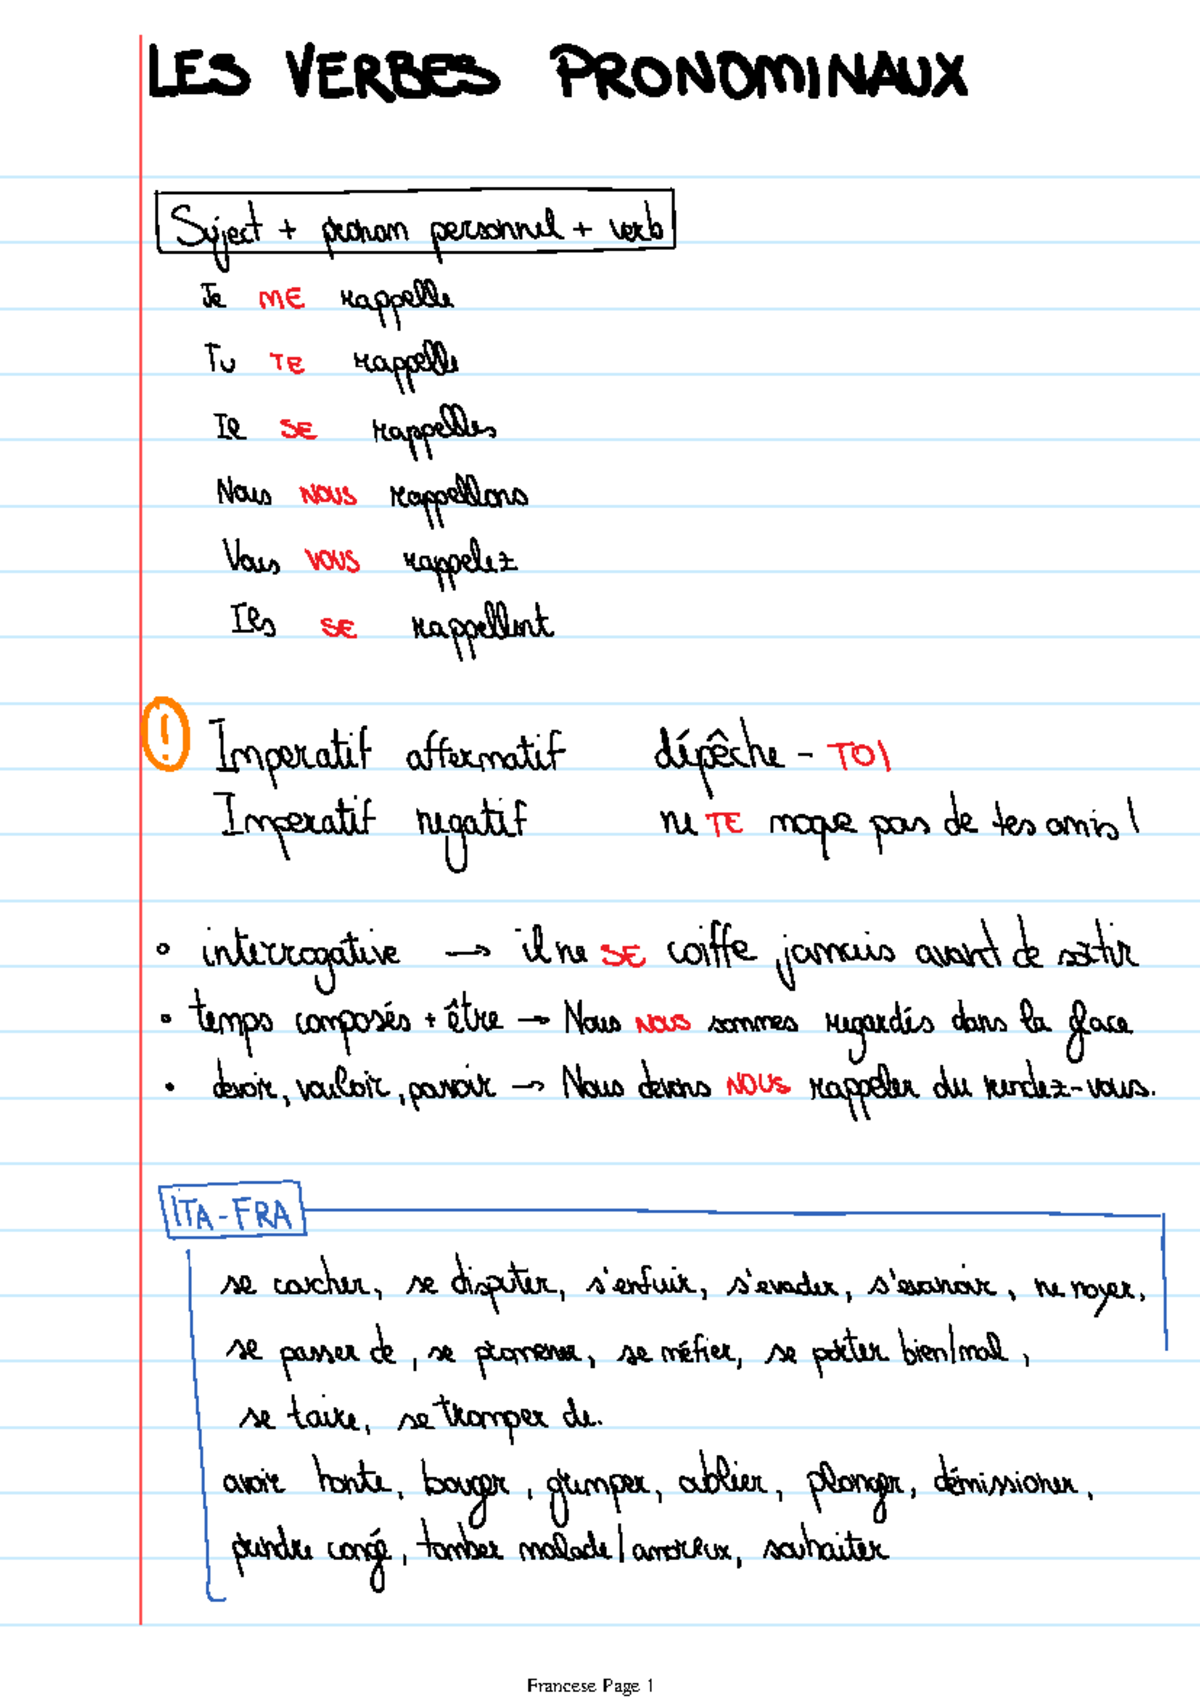 LES VERBES PRONOMINAUX
Sujet + pronom personnel + verb
Je ME rappelle
Tu TE rappelle
Il SE rappelles
Nous NOUS rappellons
Vous VOUS rappelez
Ils SE rappellent
! Imperatif affermatif dépêche - TOI
Imperatif negatif ne TE moque pas de tes amis !
• interrogative → il ne SE coiffe jamais avant de sortir
• temps composés + être → Nous NOUS sommes regardés dans la glace
• devoir, vouloir, povoir → Nous devons NOUS rappeler du rendez-vous.
ITA-FRA
se cascher, se disputer, s'enfuir, s'evader, s'evanoir, ne noyer,
se passer de, se promener, se méfier, se porter bien/mal,
se taire, se tromper de.
avoir honte, bouger, grimper, oublier, plonger, démissioner,
prendre congé, tomber malade/amoreux, souhaiter
Francese Page 1